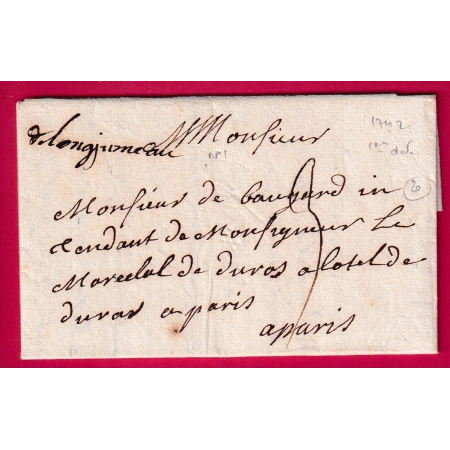 de longjumeau Monsieur
1742
n°1
Monsieur de bauyard in
tendant de Monsigneur Le
Marechal de duras a lotel de
duras a paris
aparis
3
6